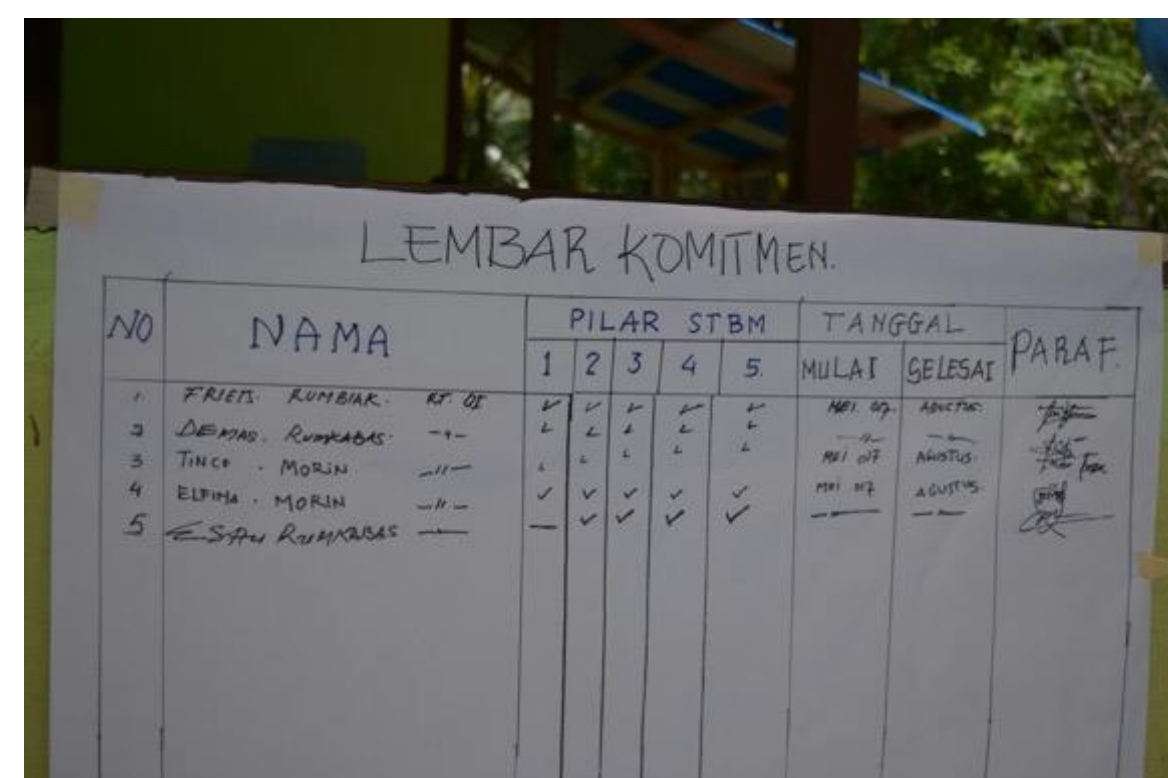 LEMBAR KOMITMEN.
NO NAMA PILAR STBM TANGGAL PARAF.
1 2 3 4 5. MULAI SELESAI
1. FRIETS. RUMBIAR. RT. 01 ✓ ✓ ✓ ✓ ✓ MEI. 017. AGUSTUS.
2 DEMAS. RUMKABAS. -"- ✓ ✓ ✓ ✓ ✓ -"- -"-
3 TINCE . MORIN -"- ✓ ✓ ✓ ✓ ✓ MEI 017 AGUSTUS.
4 ELFINA . MORIN -"- ✓ ✓ ✓ ✓ ✓ MEI 017 AGUSTUS.
5 ESAU RUMKABAS -"- — ✓ ✓ ✓ ✓ -"- -"-